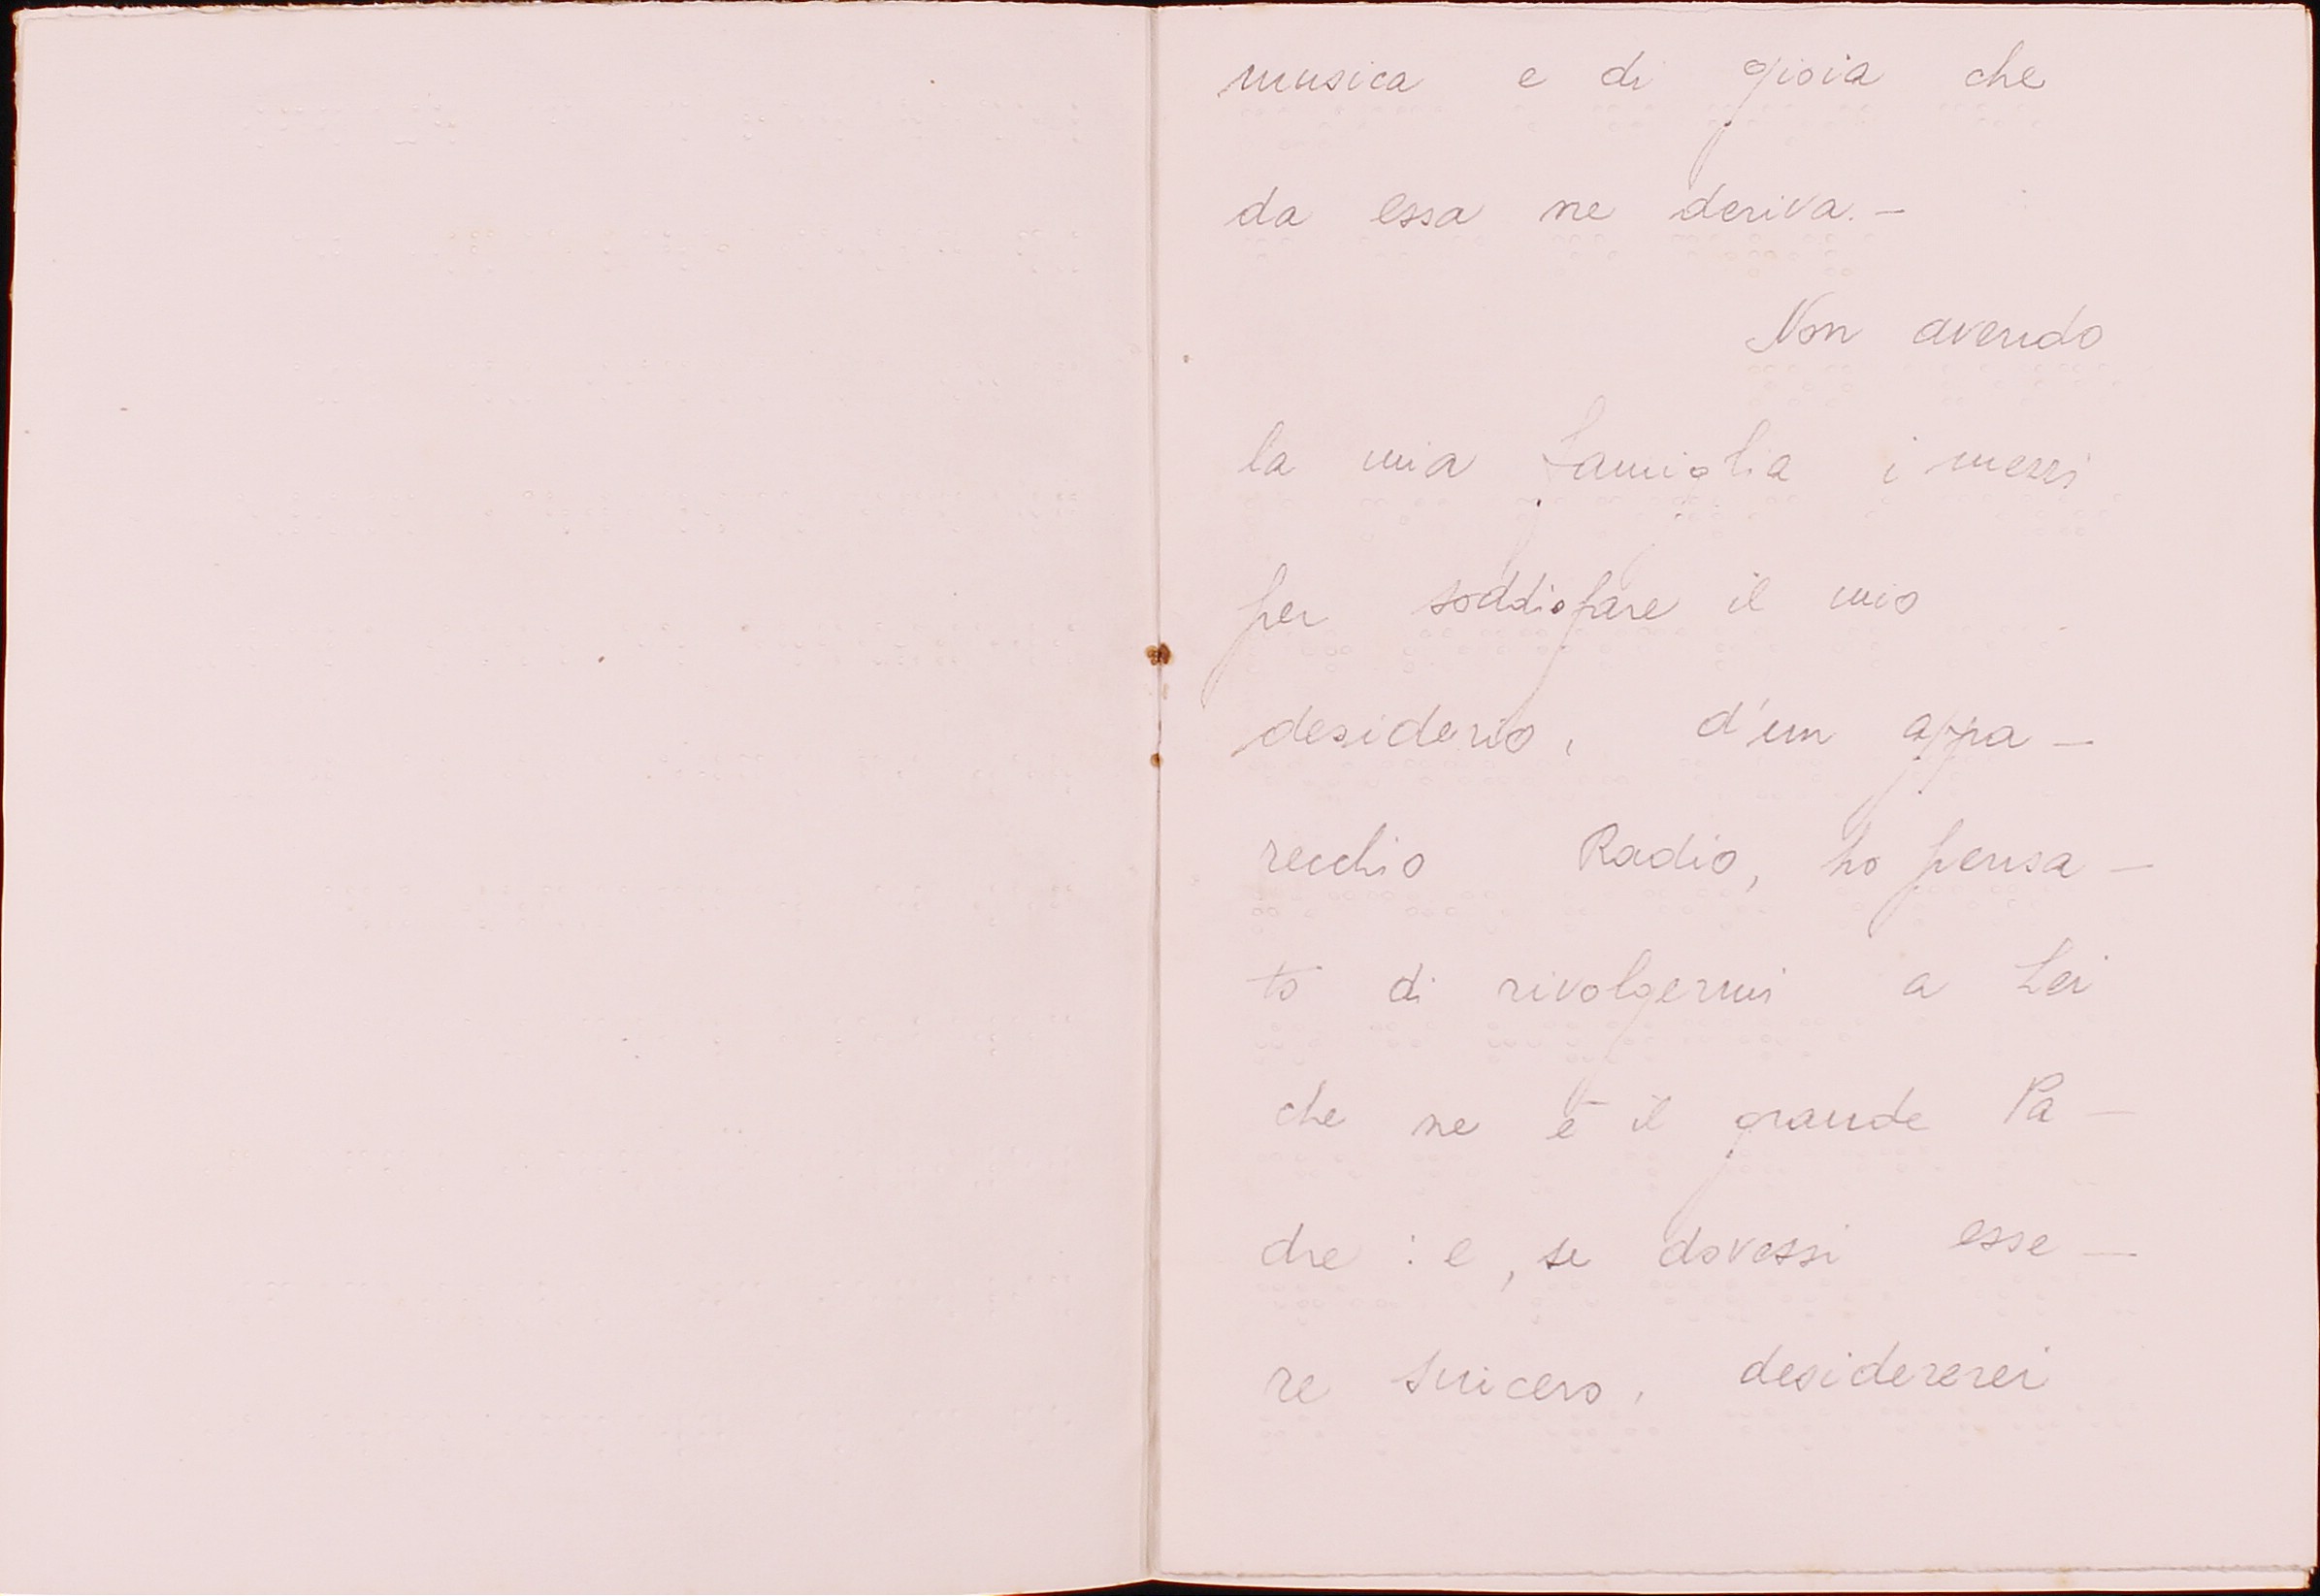 musica e di gioia che
da essa ne deriva.-
Non avendo
la mia famiglia i mezzi
per soddisfare il mio
desiderio, d'un appa-
recchio Radio, ho pensa-
to di rivolgermi a Lei
che ne è il grande Pa-
dre : e, se dovessi esse-
re sincero, desidererei